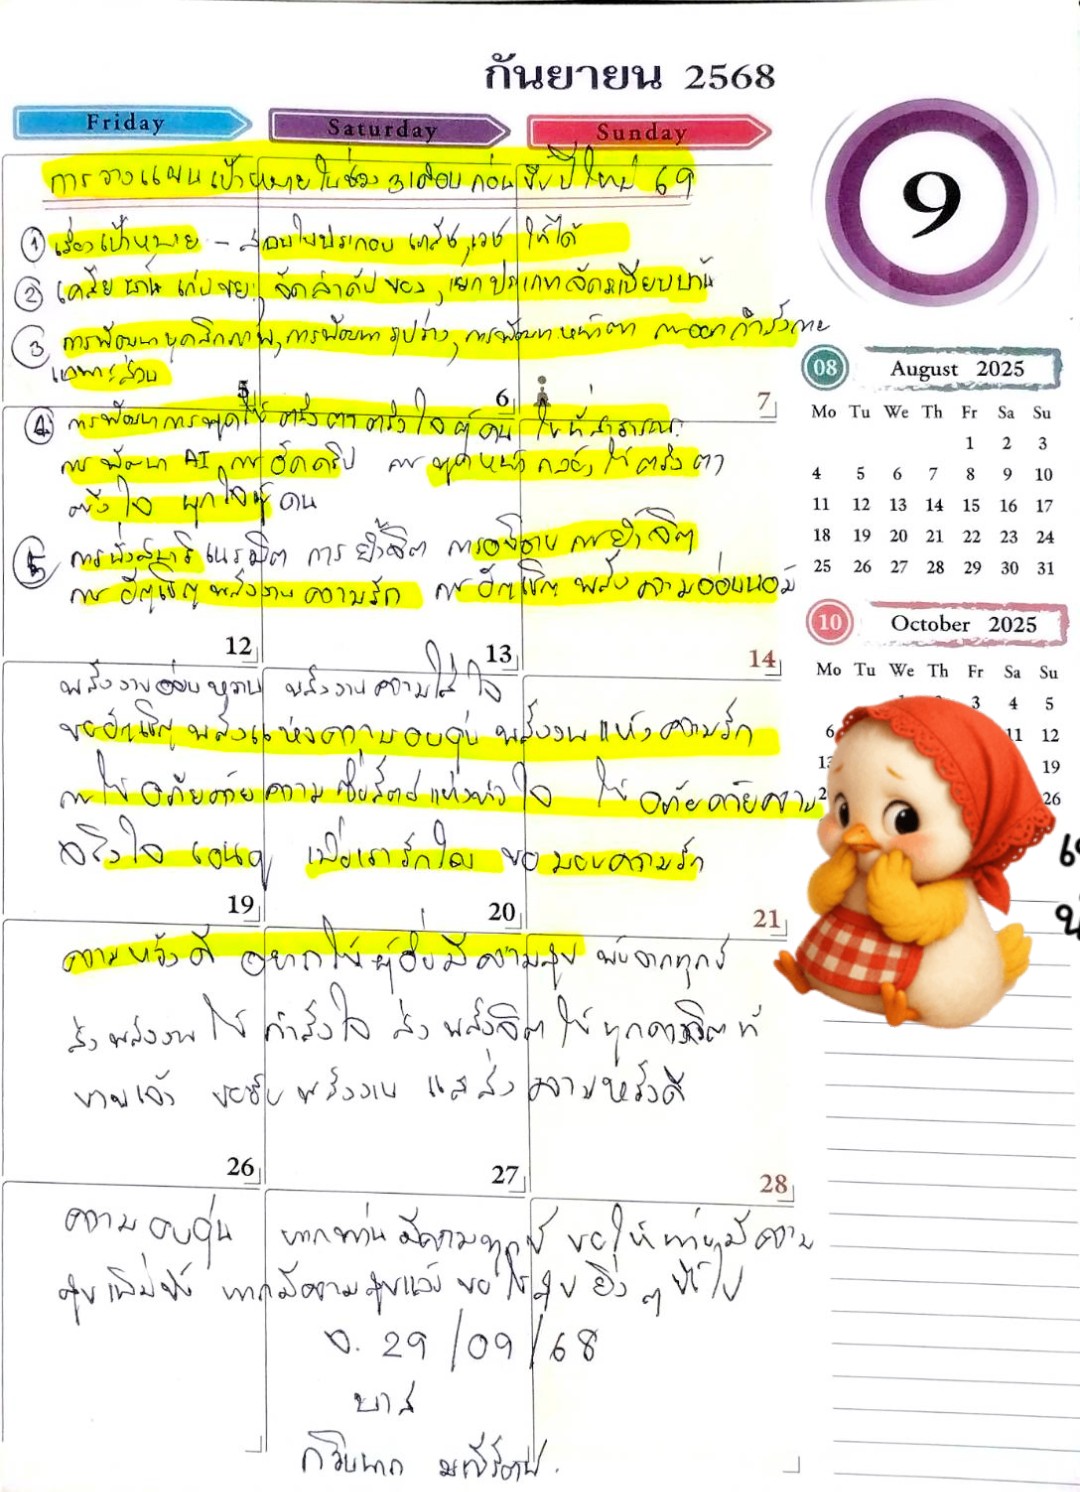 กันยายน 2568
Friday Saturday Sunday
9
การวางแผนเป้าหมายในช่วง 3 เดือน ก่อนขึ้นปีใหม่ 69
① เรื่องเป้าหมาย - สอบใบประกอบ เภสัช, เวช ให้ได้
② เคลียร์บ้าน เก็บขยะ, จัดลำดับของ, แยกประเภทจัดระเบียบบ้าน
③ การพัฒนาบุคลิกภาพ, การพัฒนารูปร่าง, การพัฒนาหน้าตา การออกกำลังกาย
เฉพาะส่วน
5 6 7
④ การพัฒนาการพูดให้ ตรึงตาตรึงใจผู้คน ในที่สาธารณะ
การพัฒนา AI, การ การพูดหน้ากล้องให้ตรึงตา
ตรึงใจ ผูกใจผู้คน
⑤ การนั่งสมาธิ เนรมิต การย้ำจิต การอธิบาย การย้ำจิต
การอัญเชิญพลังงานความรัก การอัญเชิญพลังความอ่อนน้อม
12 13 14
พลังงานอ่อนหวาน พลังงานความใส่ใจ
ขออัญเชิญพลังแห่งความอบอุ่น พลังงานแห่งความรัก
การให้อภัยด้วยความซื่อสัตย์แห่งหัวใจ ให้อภัยด้วยความ
จริงใจ เอ็นดู เมื่อเรารักใคร ขอมอบความรัก
19 20 21
ความหวังดี อยากให้ผู้อื่นมีความสุข พ้นจากทุกข์
ส่งพลังงานให้กำลังใจ ส่งพลังจิตให้ทุกดวงจิตที่
ขอรับพลังงาน และส่งความหวังดี
26 27 28
ความอบอุ่น หากท่านมีความทุกข์ ขอให้ท่านมีความ
สุข หากมีความสุขแล้ว ขอให้สุขยิ่งๆ ขึ้นไป
จ. 29/09/68
08 August 2025
Mo Tu We Th Fr Sa Su
1 2 3
4 5 6 7 8 9 10
11 12 13 14 15 16 17
18 19 20 21 22 23 24
25 26 27 28 29 30 31
10 October 2025
Mo Tu We Th Fr Sa Su
3 4 5
6 11 12
19
26